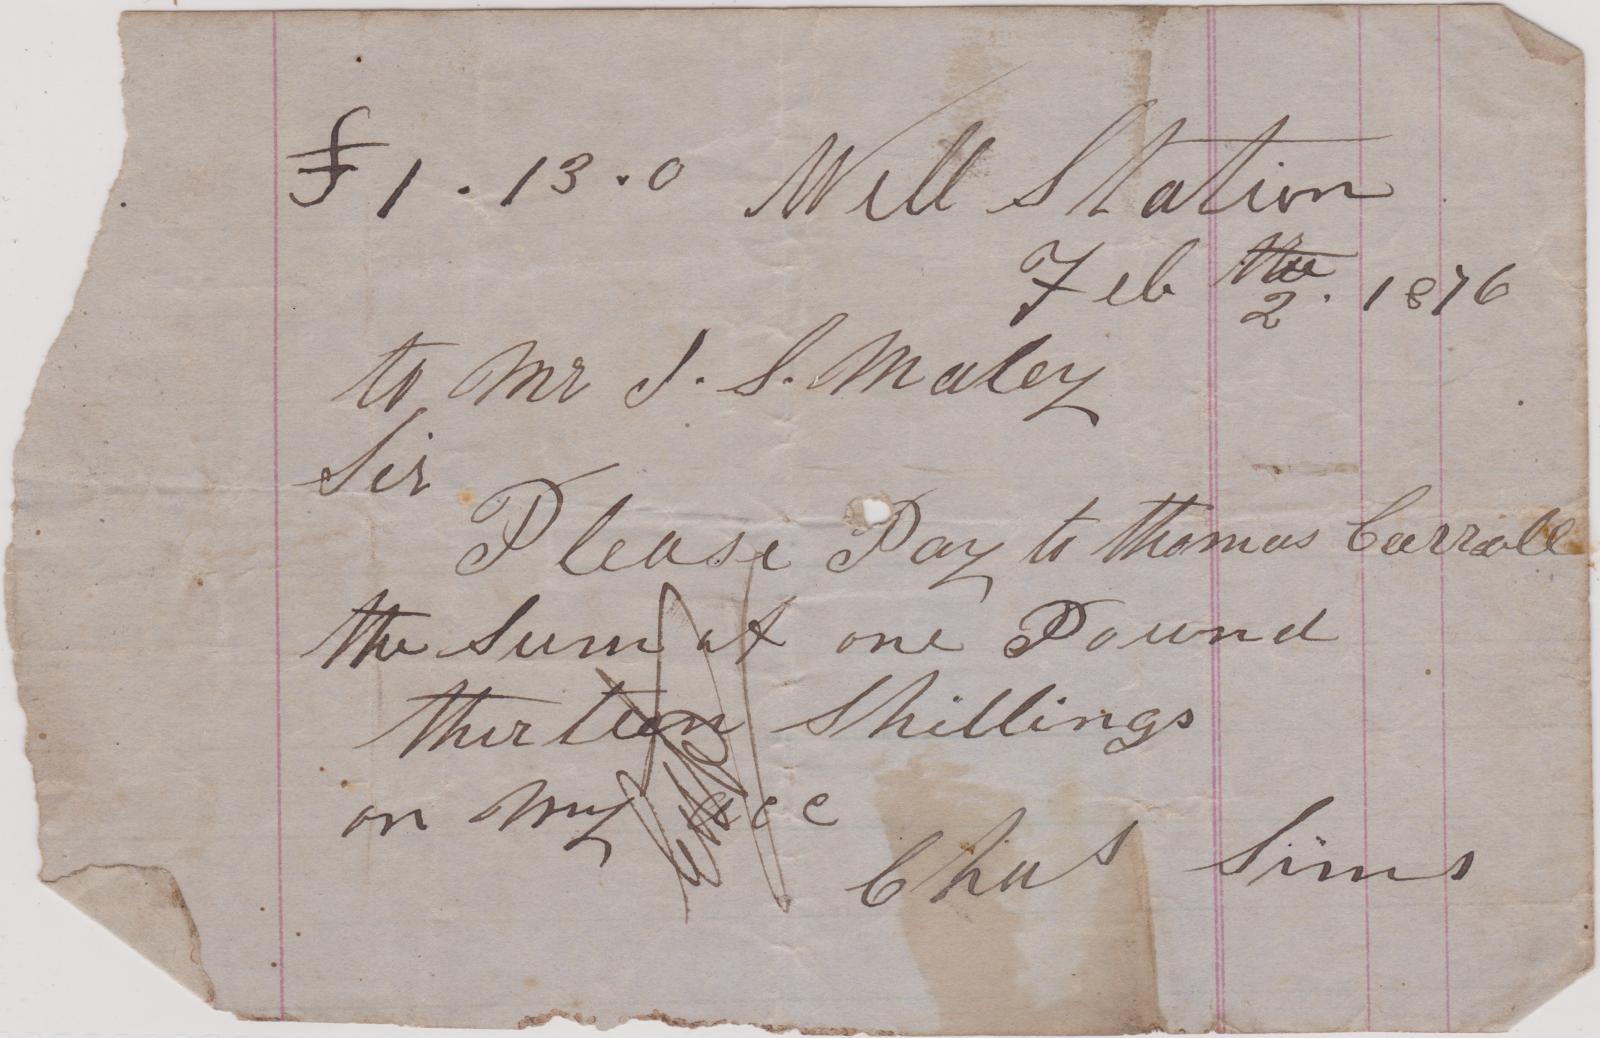 £1.13.0 Well Station
Feb the 2. 1876
to Mr J. S. Maley
Sir
Please Pay to Thomas Carroll
the Sum of one Pound
thirteen Shillings
on my acc
Chas Sims